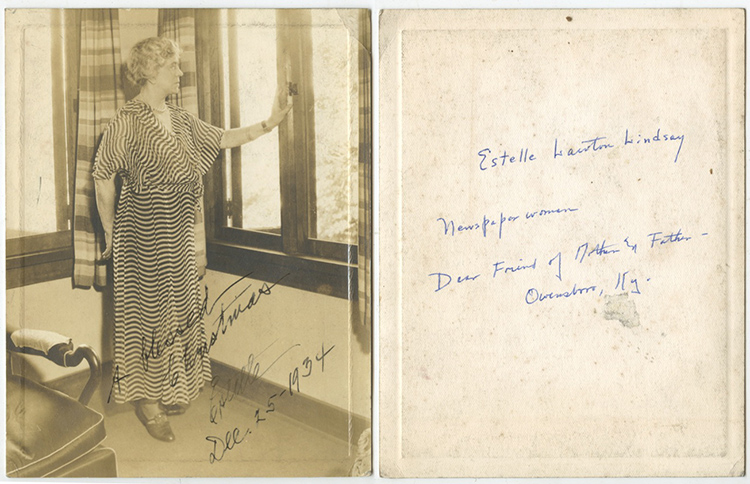 A Blessed
Christmas
Estelle
Dec. 25-1934
Estelle Lawton Lindsay
Newspaper woman
Dear Friend of Mother & Father-
Owensboro, Ky.